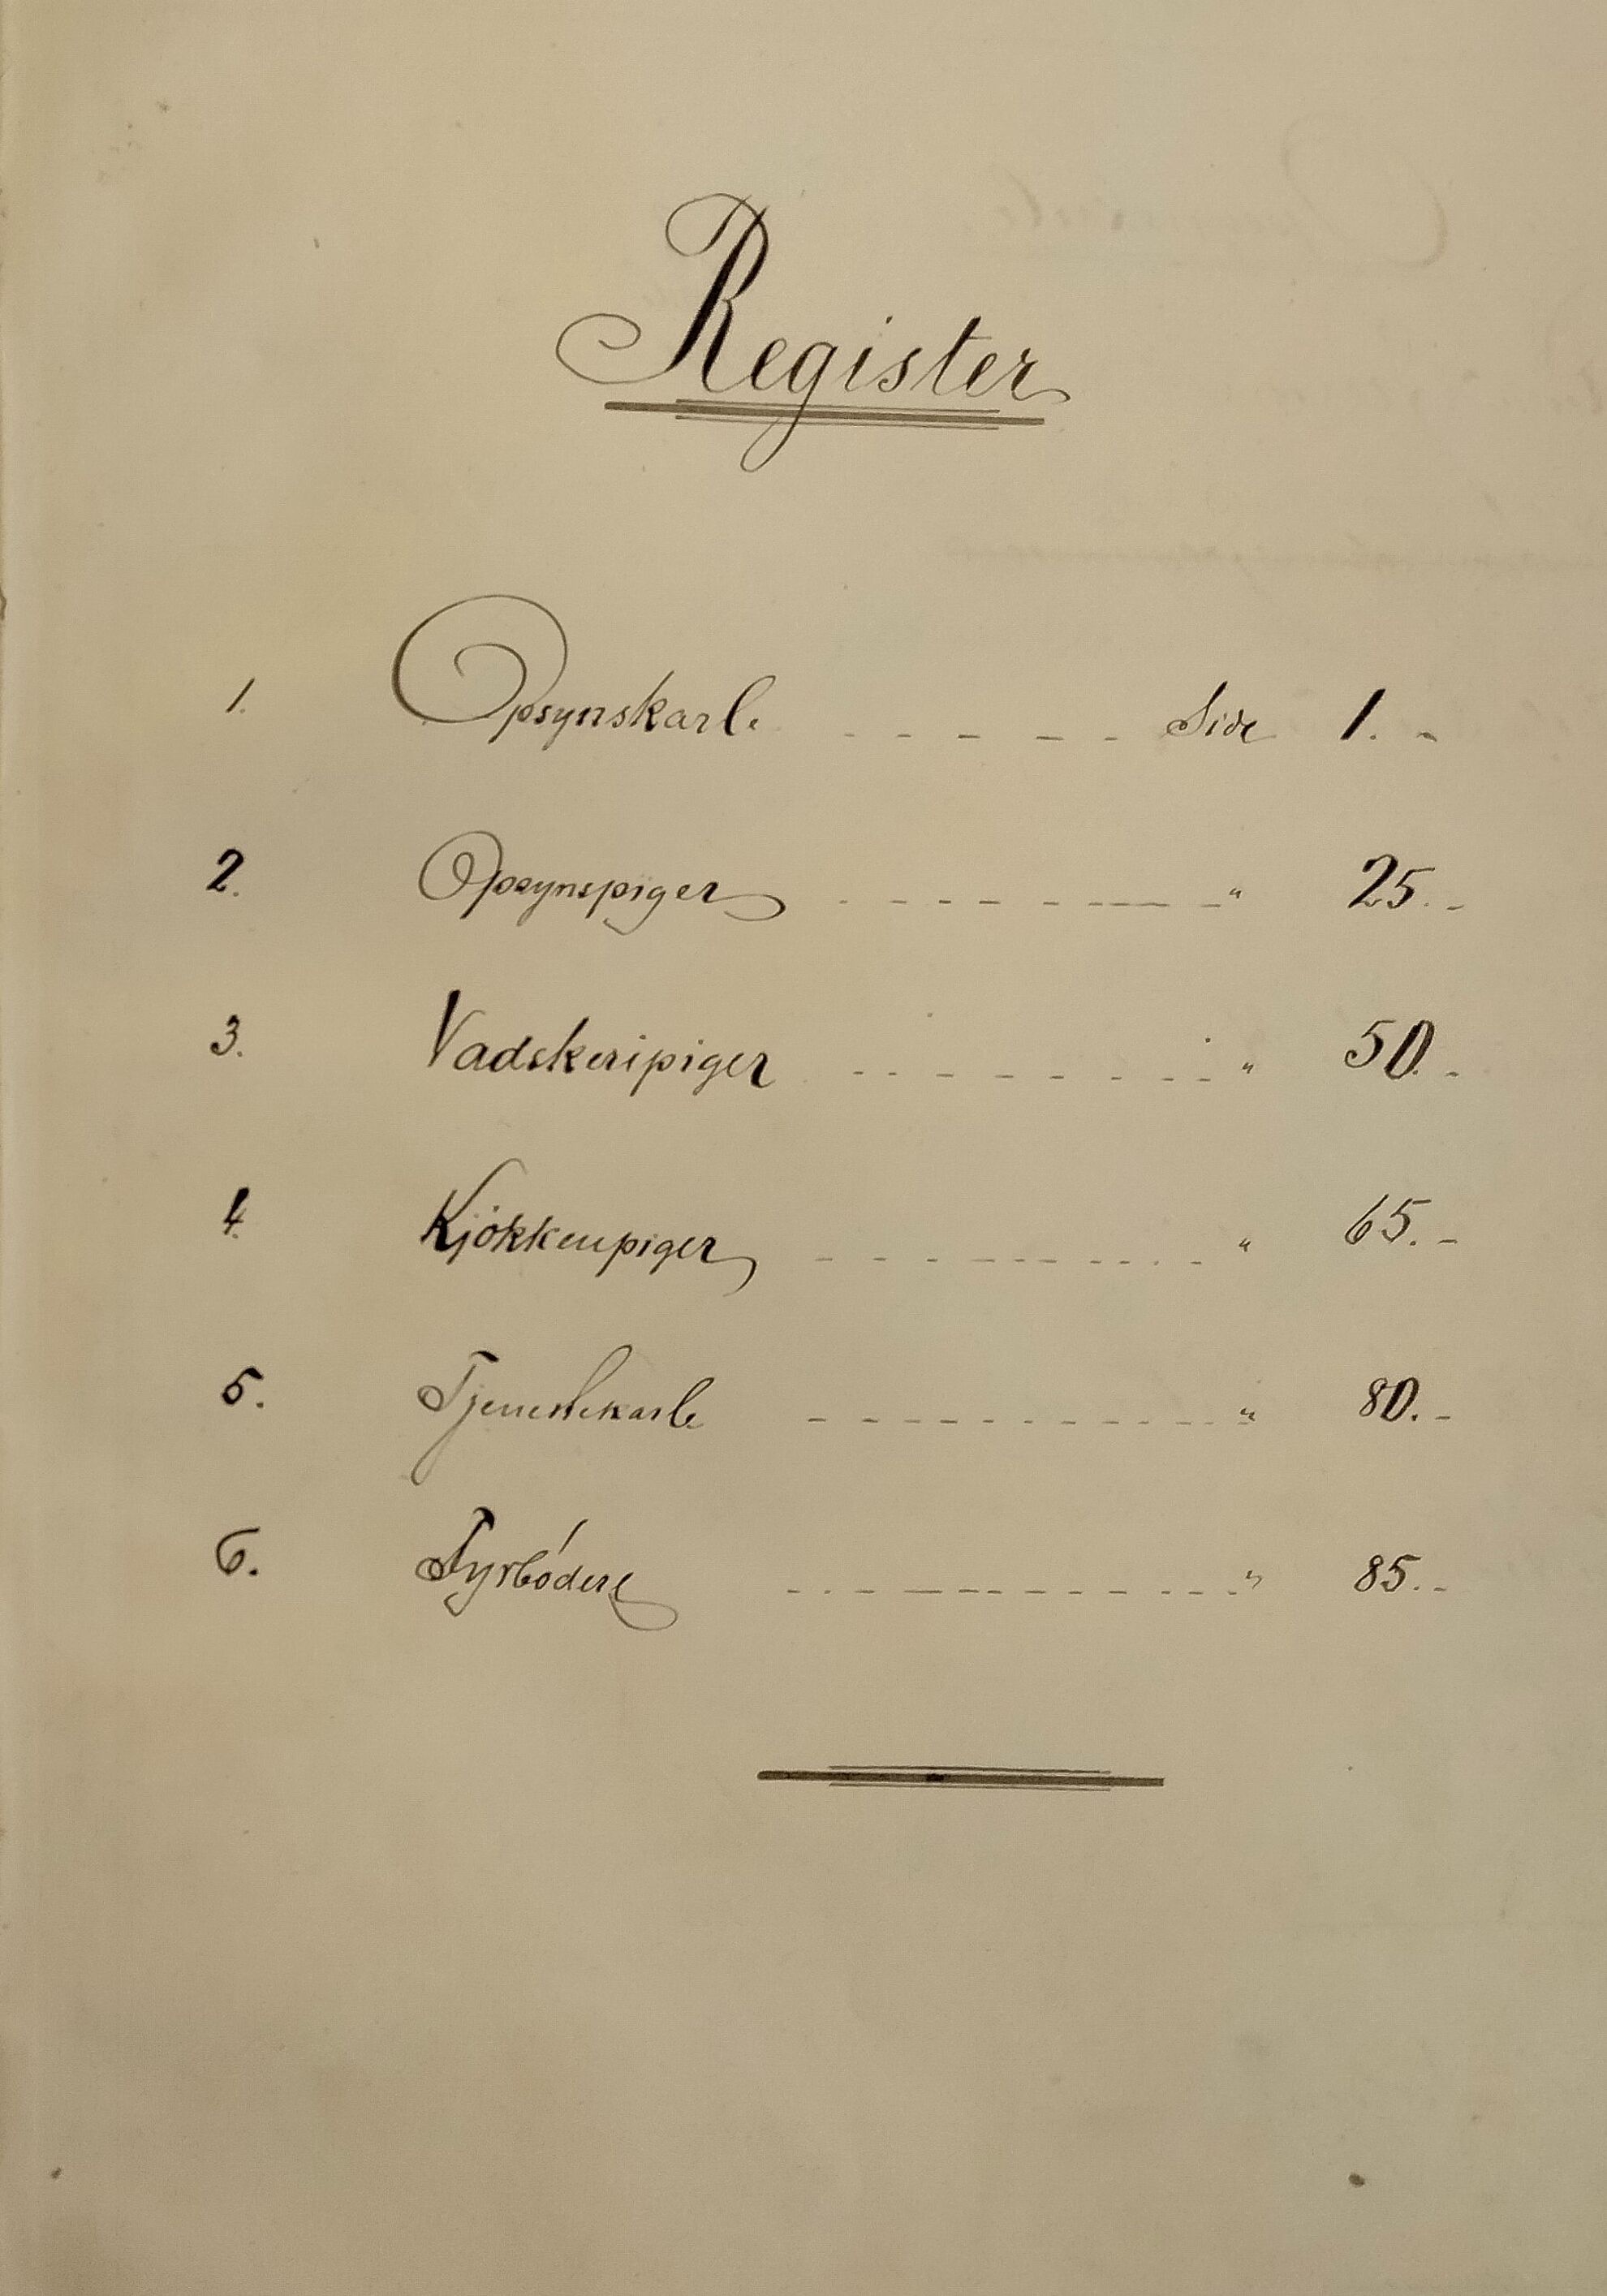 Register
1. Opsynskarle - - - - - Side 1. -
2. Opsynspiger - - - - - - - - - " 25. -
3. Vadskeripiger - - - - - - - - " 50. -
4. Kjökkenpiger - - - - - - - - - " 65. -
5. Tjenestekarle - - - - - - - - - - " 80. -
6. Fyrbödere - - - - - - - - - - " 85. -